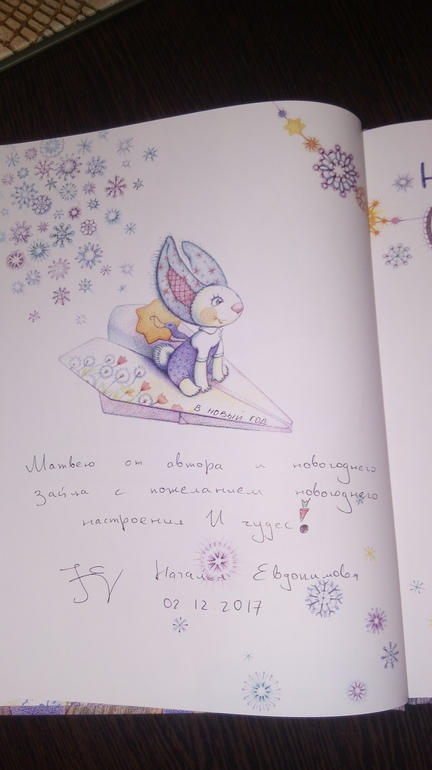 В НОВЫЙ ГОД
Матвею от автора и новогоднего
зайца с пожеланием новогоднего
настроения И чудес!
Наталья Евдокимова
02 12.2017
Н